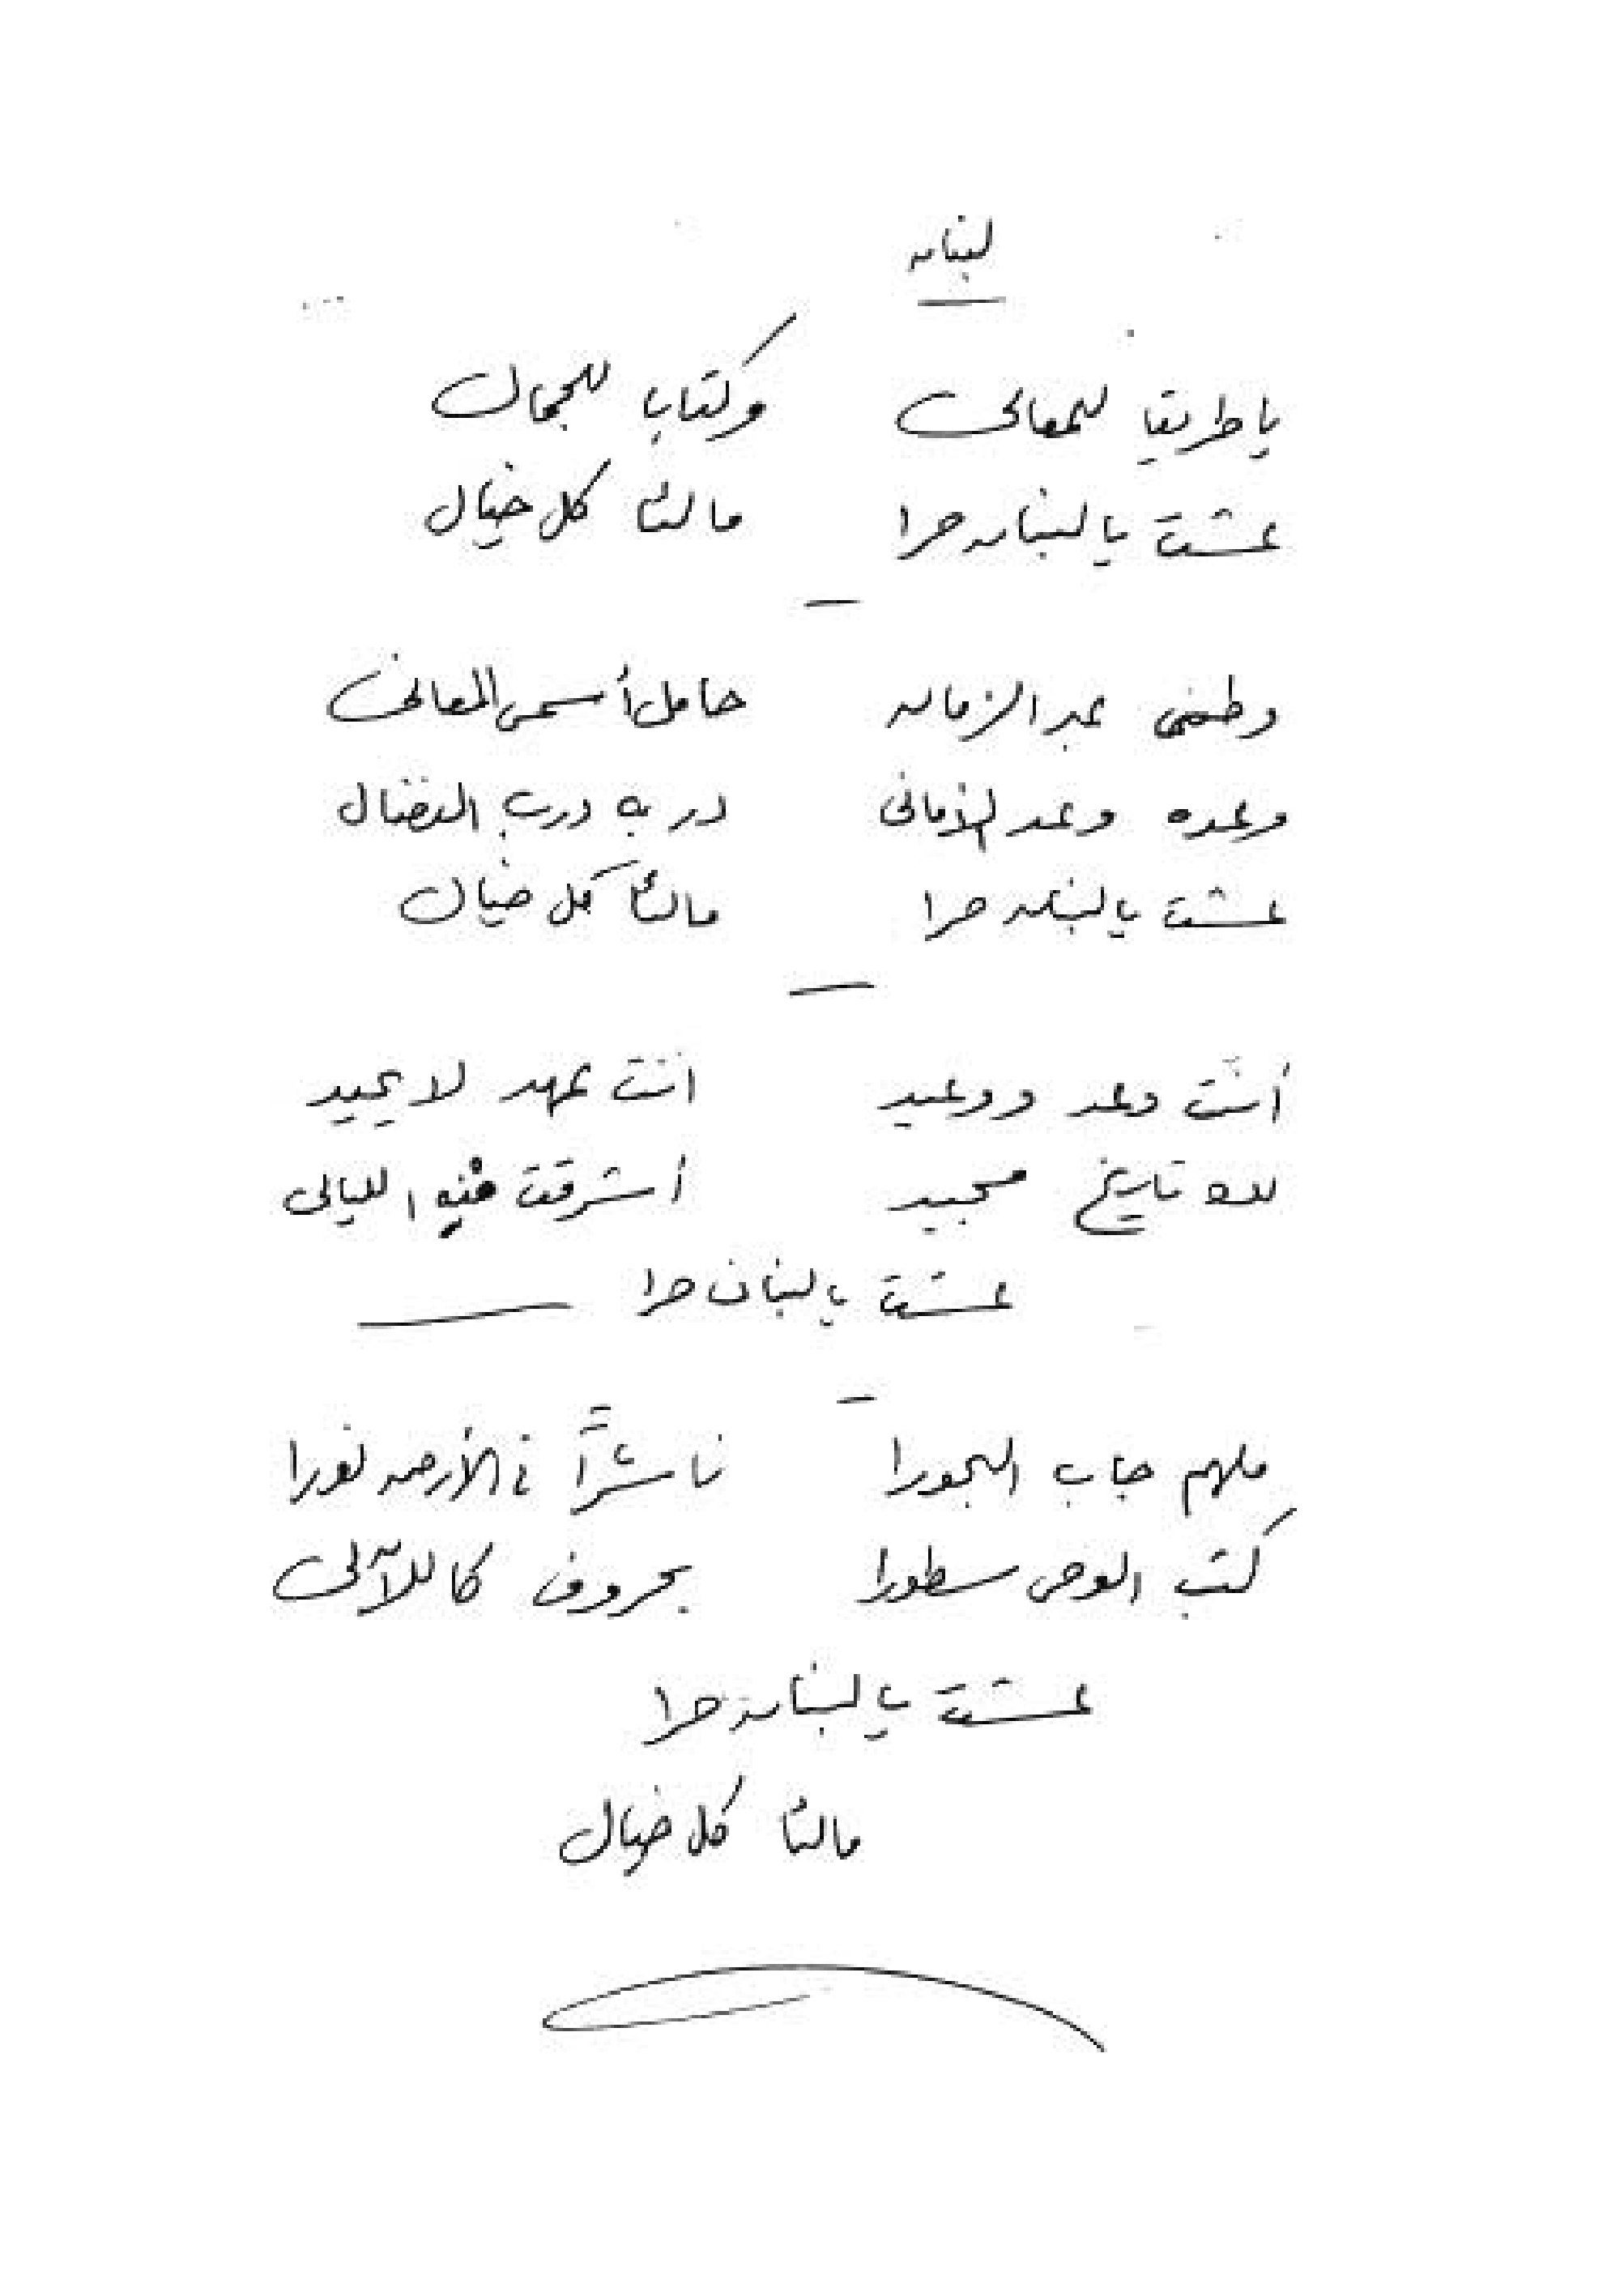 لبنان
يا طريقا للمعالي وكتاب للجمال
عشت يا لبنان حرا مالئا كل خيال
وطني عبر الزمان حامل أسمى المعاني
وعده وعد الأماني دربه درب النضال
عشت يا لبنان حرا مالئا كل خيال
أنت وعد ووعيد انت عهد لا يحيد
لك تاريخ مجيد أشرقت منه الليالي
عشت يا لبنان حرا
ملهم جاب البحورا ناشراً في الأرض نورا
كتب الوحي سطورا بحروف كاللآلي
عشت يا لبنان حرا
مالئا كل خيال